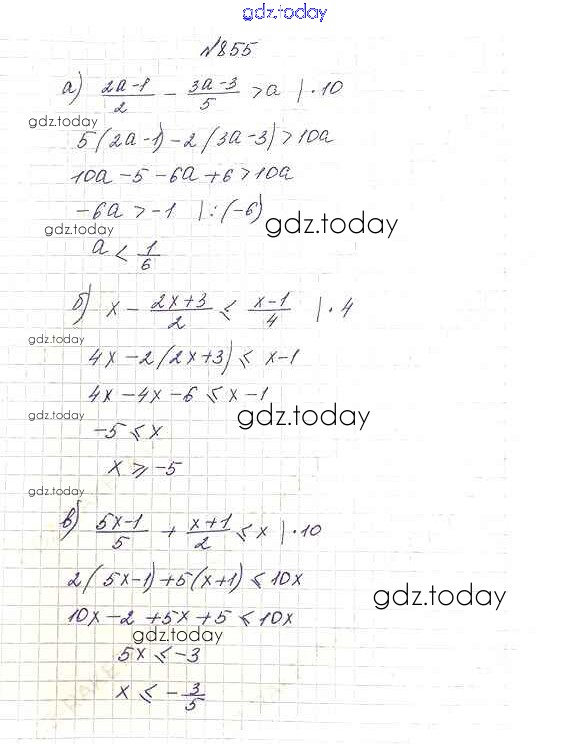 gdz.today
№855
а) (2a-1)/2 - (3a-3)/5 > a |·10
gdz.today
5(2a-1)-2(3a-3)>10a
10a-5-6a+6>10a
-6a>-1 |:(-6)
gdz.today
gdz.today
a < 1/6
б) x - (2x+3)/2 ⩽ (x-1)/4 |·4
gdz.today
4x-2(2x+3)⩽ x-1
4x-4x-6⩽x-1
gdz.today
gdz.today
-5⩽x
x⩾-5
gdz.today
в) (5x-1)/5 + (x+1)/2 ⩽ x |·10
2(5x-1)+5(x+1)⩽10x
gdz.today
10x-2+5x+5⩽10x
gdz.today
5x⩽-3
x⩽-3/5